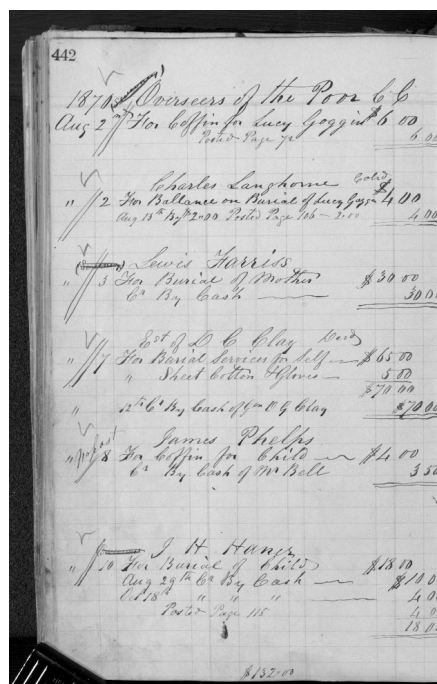 442
1870 Overseers of the Poor C C
Aug 2 For Coffin for Lucy Goggin $6 00
Posted Page 72 6 00
Charles Langhorne Cold
" 2 For Ballance on Burial of Lucy Goggin $4 00
Aug 13th By $2.00 Posted Page 106 - 2.00 4 00
Lewis Harriss
" 3 For Burial of Mother $30 00
Cr By Cash 30 00
Est of D C Clay Decd
" 7 For Burial Services for Self $65 00
" Sheet Cotton & Gloves 5 00
$70 00
" 12th Cr By Cash of Wm O G Clay $70 00
James Phelps
" 8 For Coffin for Child $4 00
Cr By Cash of Mr Bell 3 50
J H Haner
" 10 For Burial of Child $18 00
Aug 29th Cr By Cash $10 0
Oct 18th " " " 4 0
Posted Page 115 4 0
18 0
$132.00